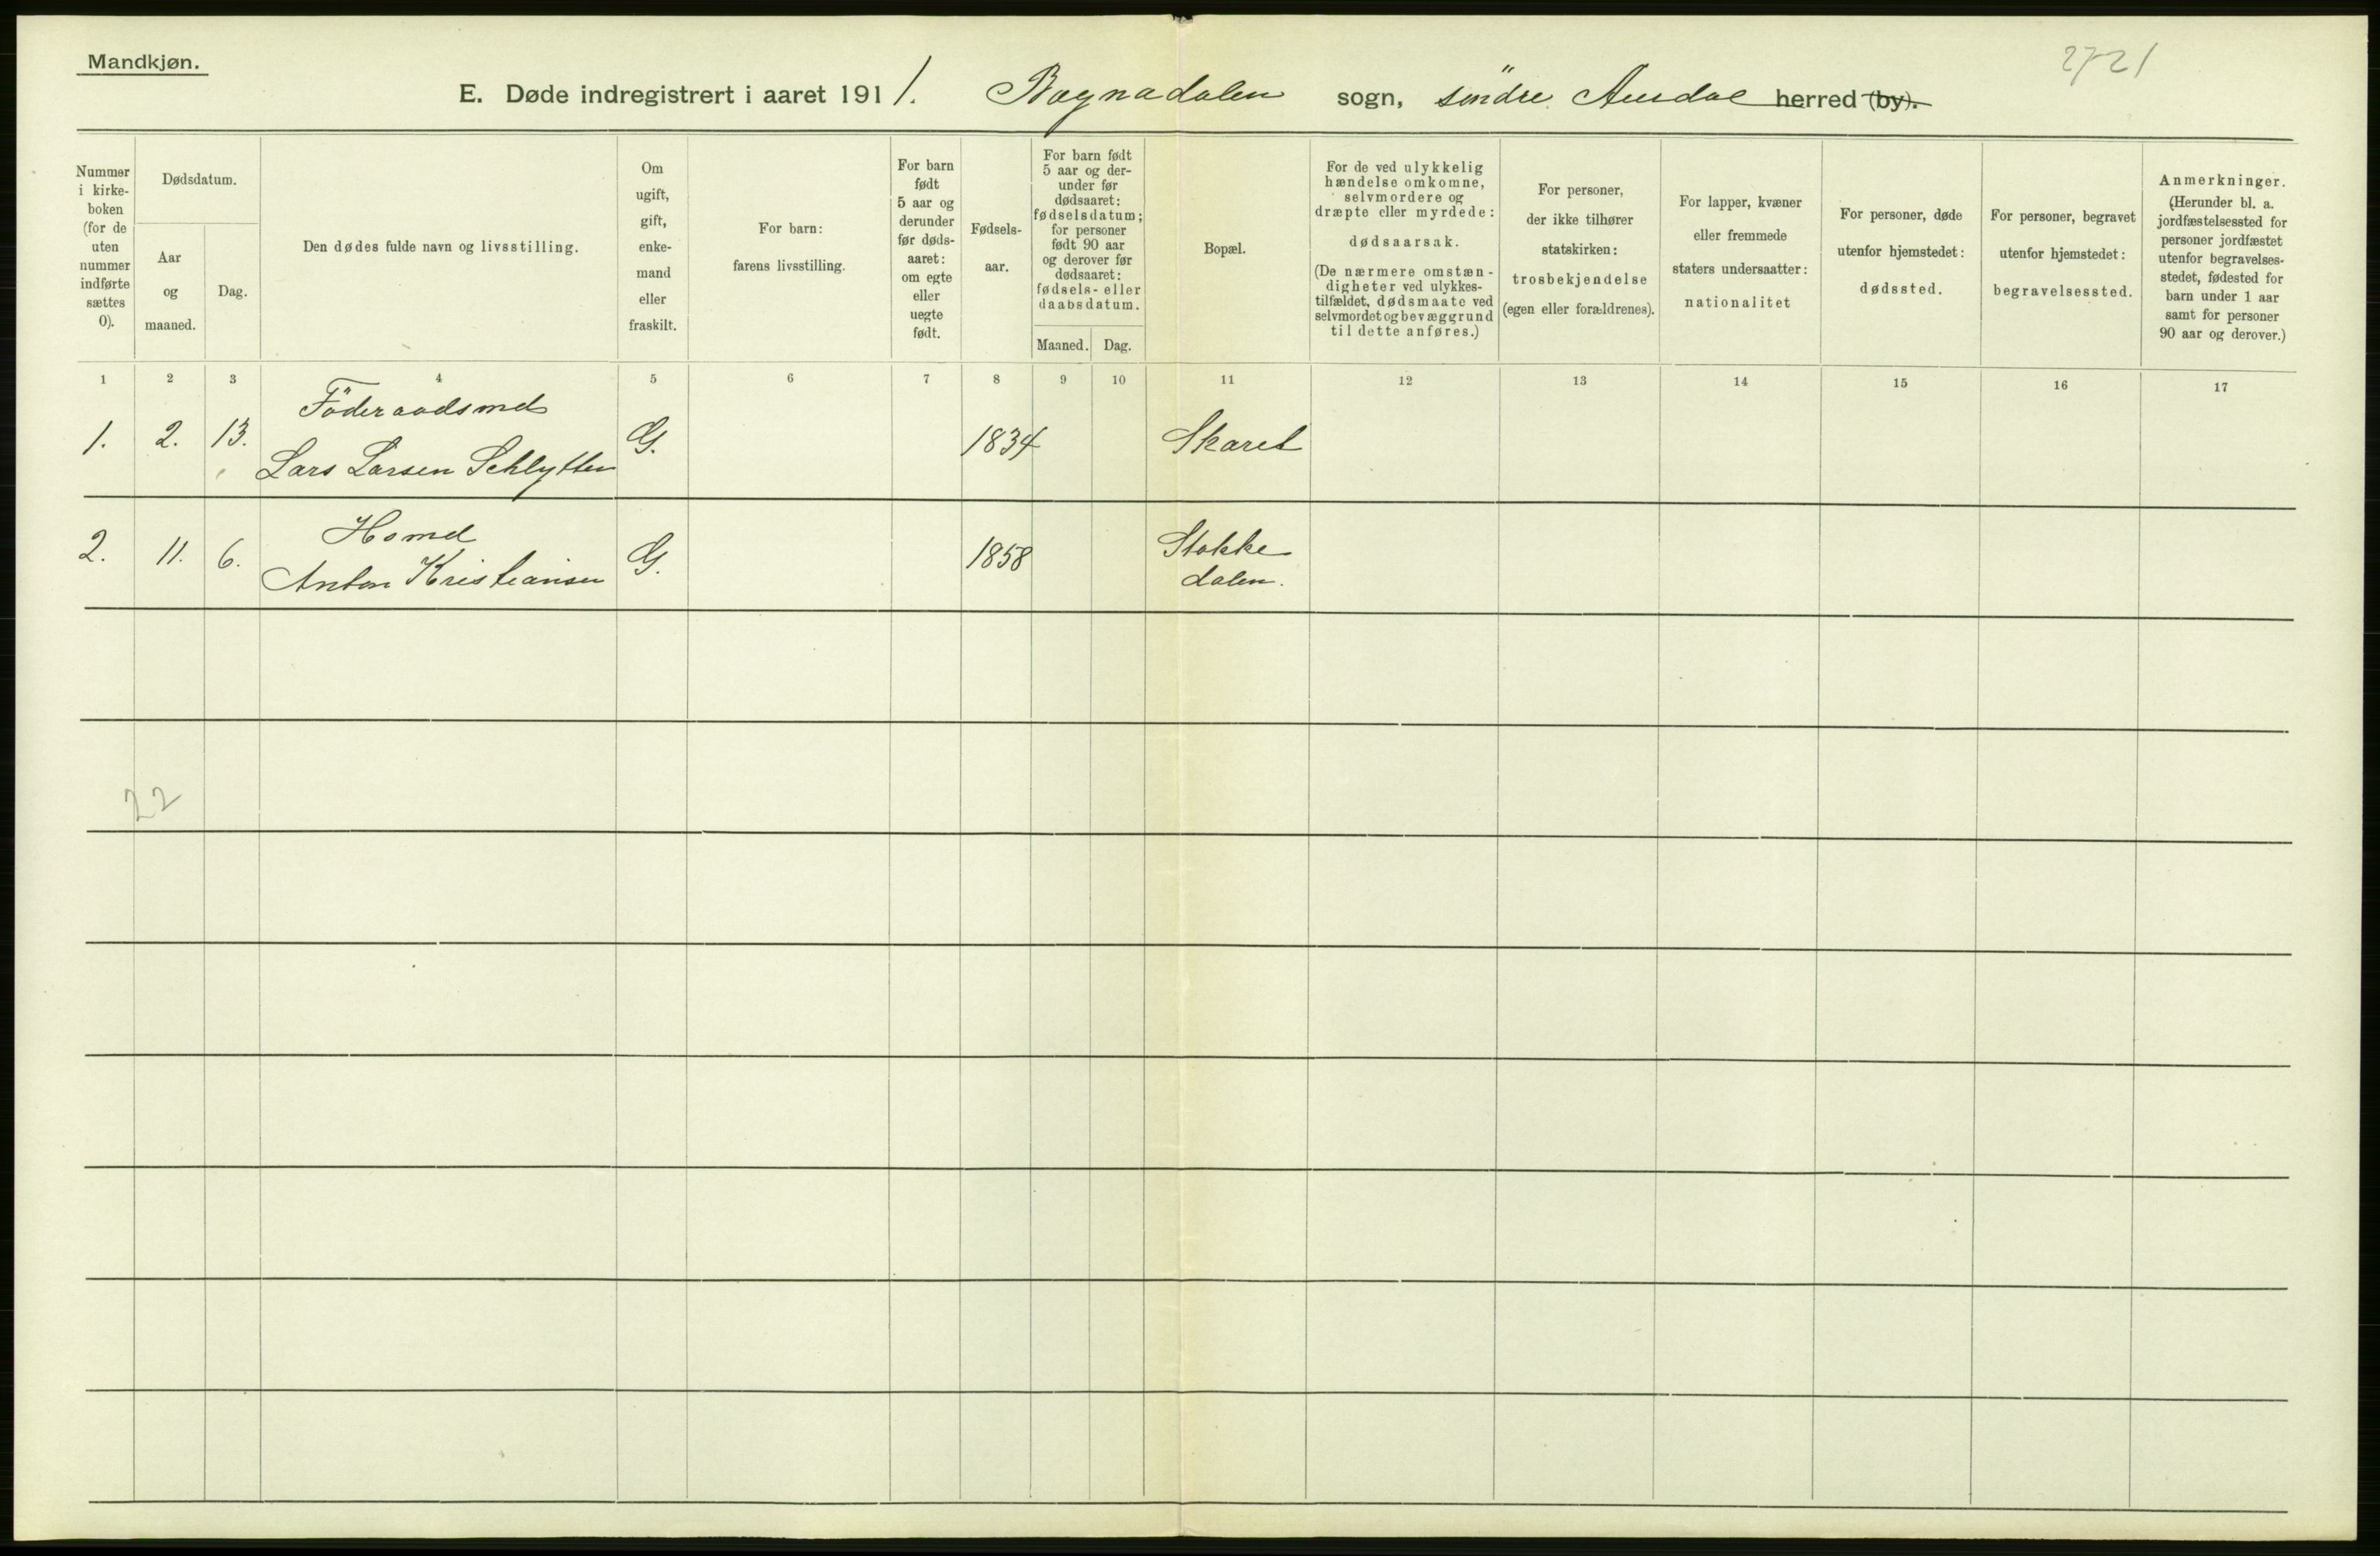 Mandkjøn.
2721
E. Døde indregistrert i aaret 1911. Bagnadalen sogn, søndre Aurdal herred (by).
Nummer i kirke-boken (for de uten nummer indførte sættes 0).
Dødsdatum.
Aar og maaned.
Dag.
Den dødes fulde navn og livsstilling.
Om ugift, gift, enke-mand eller fraskilt.
For barn: farens livsstilling.
For barn født 5 aar og derunder før døds-aaret: om egte eller uegte født.
Fødsels-aar.
For barn født 5 aar og der-under før dødsaaret: fødselsdatum; for personer født 90 aar og derover før dødsaaret: fødsels- eller daabsdatum.
Maaned.
Dag.
Bopæl.
For de ved ulykkelig hændelse omkomne, selvmordere og dræpte eller myrdede: dødsaarsak. (De nærmere omstæn-digheter ved ulykkes-tilfældet, dødsmaate ved selvmordet og bevæggrund til dette anføres.)
For personer, der ikke tilhører statskirken: trosbekjendelse (egen eller forældrenes).
For lapper, kvæner eller fremmede staters undersaatter: nationalitet
For personer, døde utenfor hjemstedet: dødssted.
For personer, begravet utenfor hjemstedet: begravelsessted.
Anmerkninger. (Herunder bl. a. jordfæstelsessted for personer jordfæstet utenfor begravelses-stedet, fødested for barn under 1 aar samt for personer 90 aar og derover.)
1 2 3 4 5 6 7 8 9 10 11 12 13 14 15 16 17
Föderaadsmd
1. 2. 13. Lars Larsen Schlytter G. 1834 Skaret
Hsmd
2. 11. 6. Anton Kristiansen G. 1858 Stokke
dalen.
22